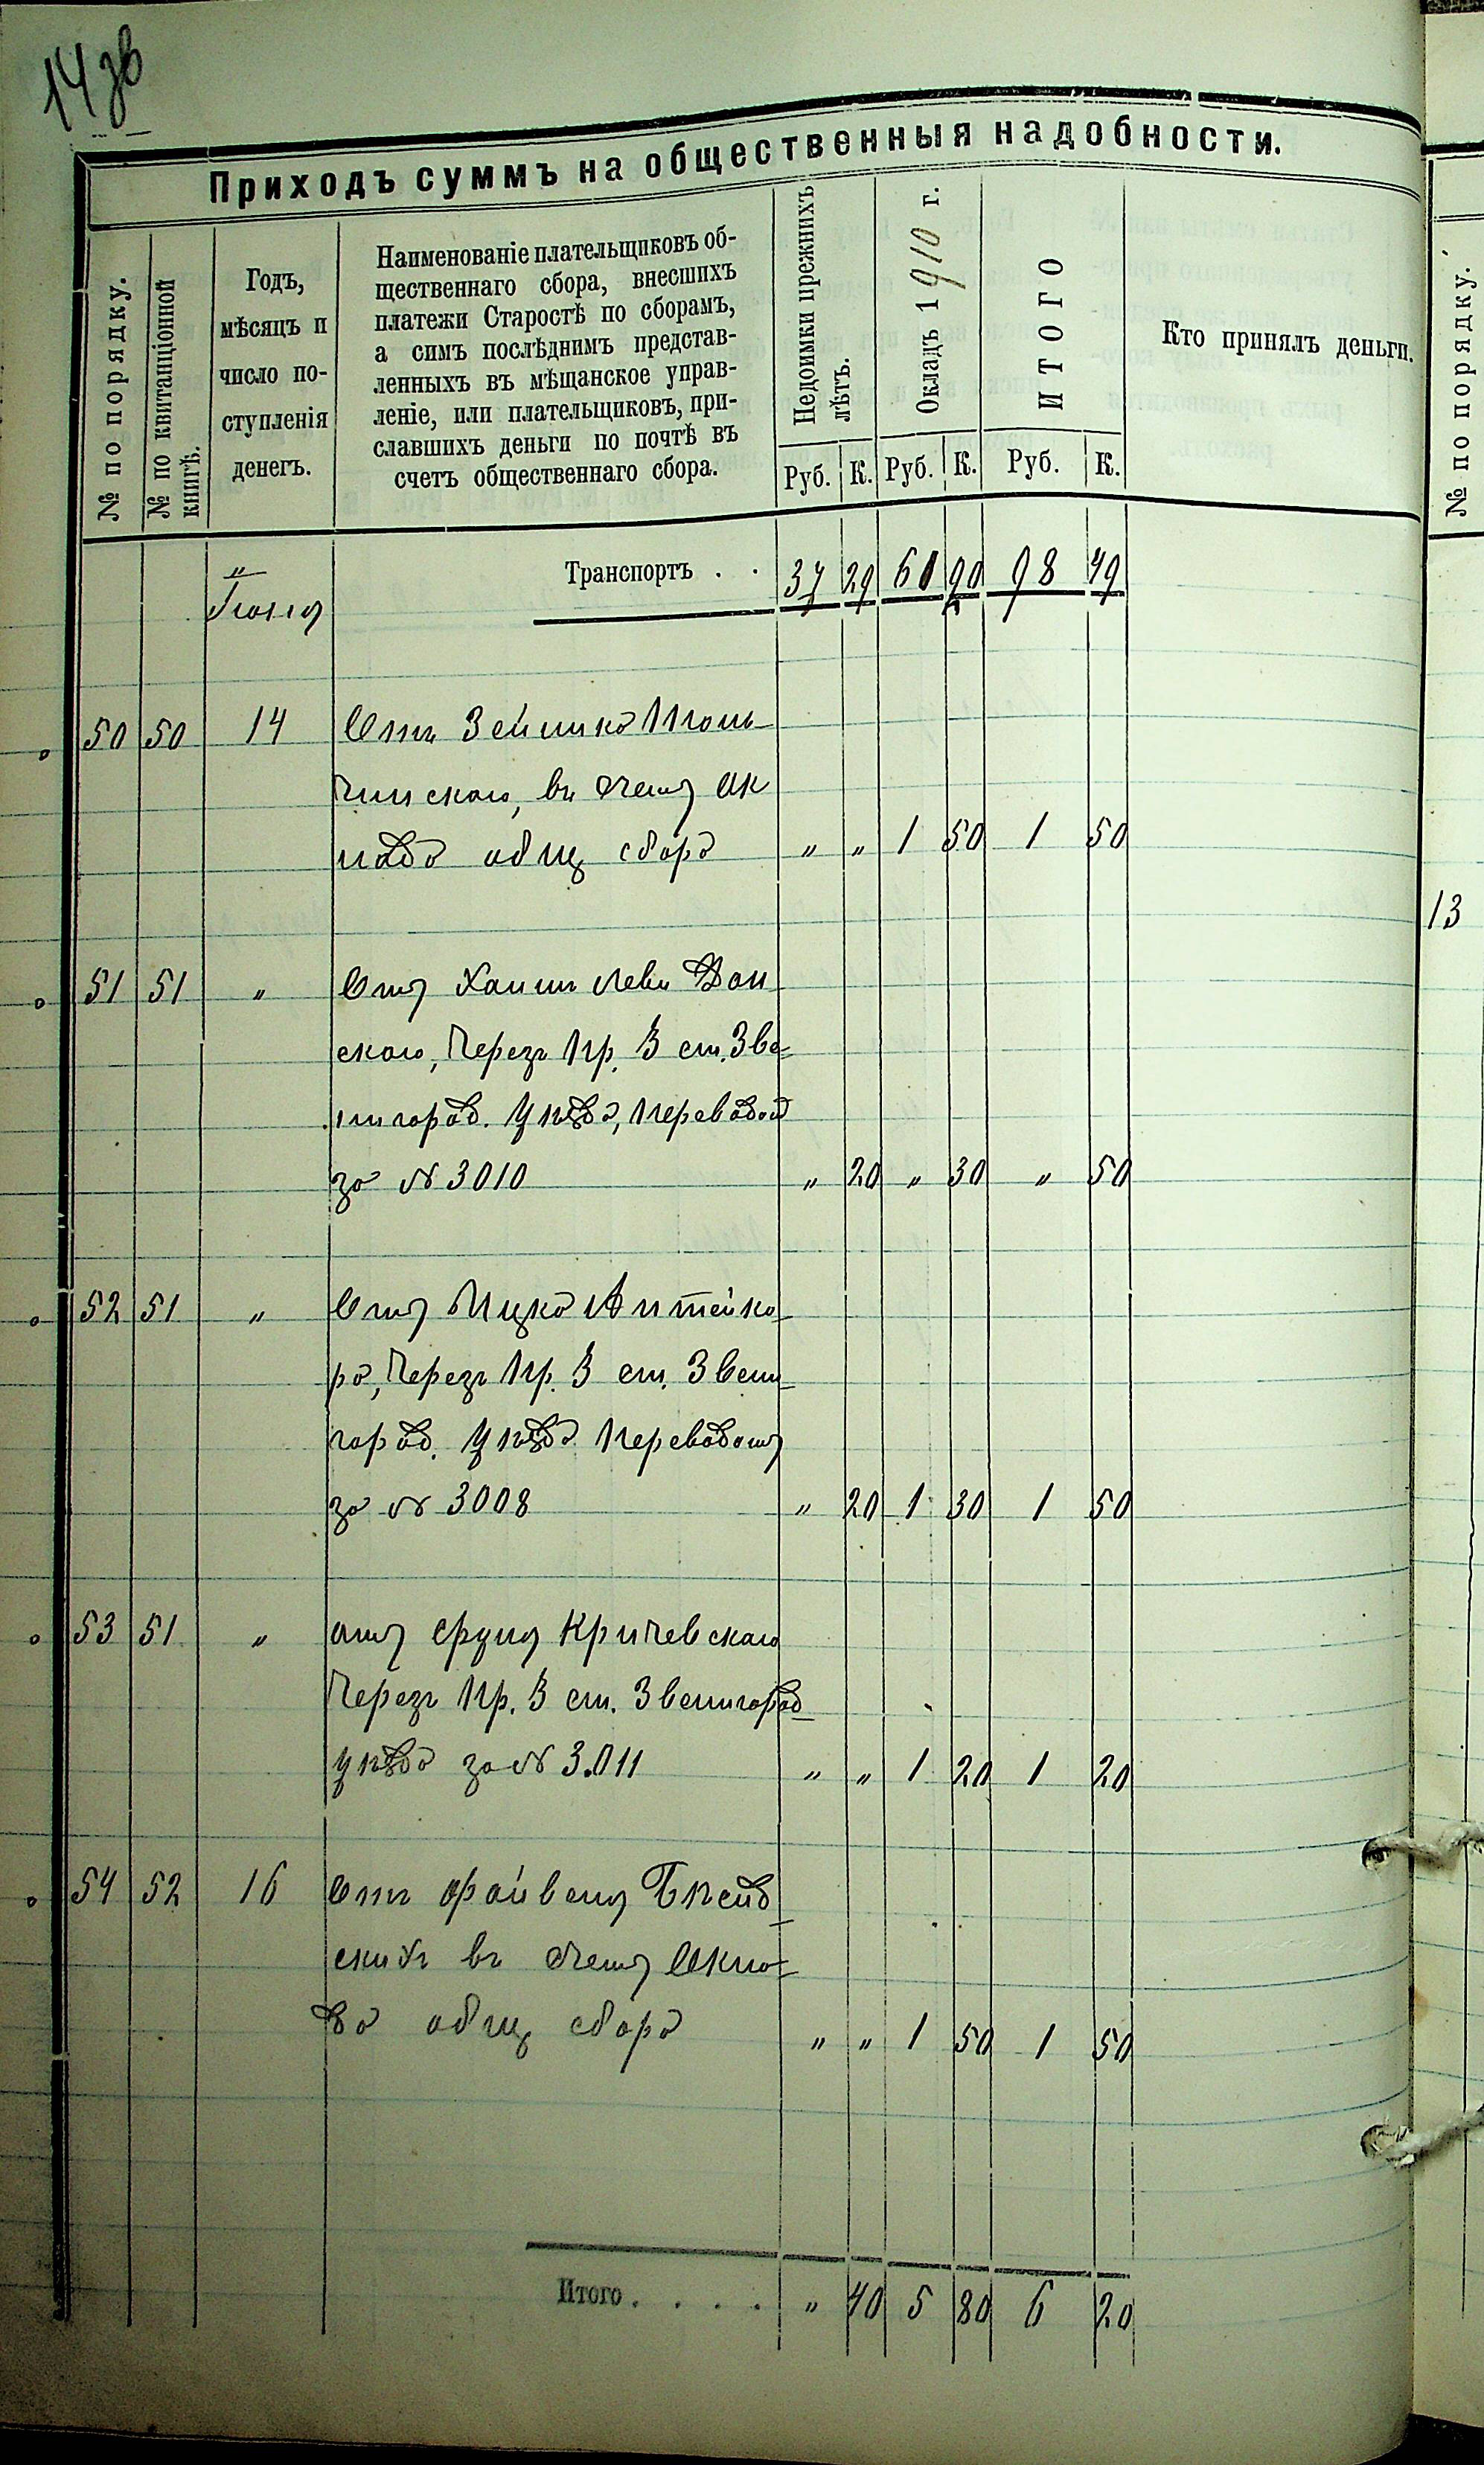 14 зв
Приходъ суммъ на общественныя надобности.
№ по порядку.
№ по квитанціонной книгѣ.
Годъ,
мѣсяцъ и
число по-
ступленія
денегъ.
Наименованіе плательщиковъ об-
щественнаго сбора, внесшихъ
платежи Старостѣ по сборамъ,
а симъ послѣднимъ представ-
ленныхъ въ мѣщанское управ-
леніе, или плательщиковъ, при-
славшихъ деньги по почтѣ въ
счетъ общественнаго сбора.
Недоимки прежнихъ
лѣтъ.
Окладъ 1910 г.
ИТОГО
Кто принялъ деньги.
Руб. К. Руб. К. Руб. К.
№ по порядку.
" Транспортъ . . 37 29 61 90 98 49
Іюня
50 50 14 Отъ Зейлика
скаго, въ счетъ ок
лада общ сбора " " 1 50 1 50
13
51 51 " Отъ Хаима Леви Дон
скаго, черезъ Пр. 3 ст. Зве=
нигород. уѣзда, переводой
за № 3010 " 20 " 30 " 50
52 51 " Отъ Ицка Аптейка
ра, черезъ Пр. 3 ст. Звени
город. уѣзда переводомъ
за № 3008 " 20 1 30 1 50
53 51 " отъ Сруля Кричевскаго
черезъ Пр. 3 ст. Звенигород
уѣзда за № 3.011 " " 1 20 1 20
54 52 16 Отъ Файвеля
скихъ въ счетъ окла=
да общ сбора " " 1 50 1 50
Итого . . . . " 40 5 80 6 20